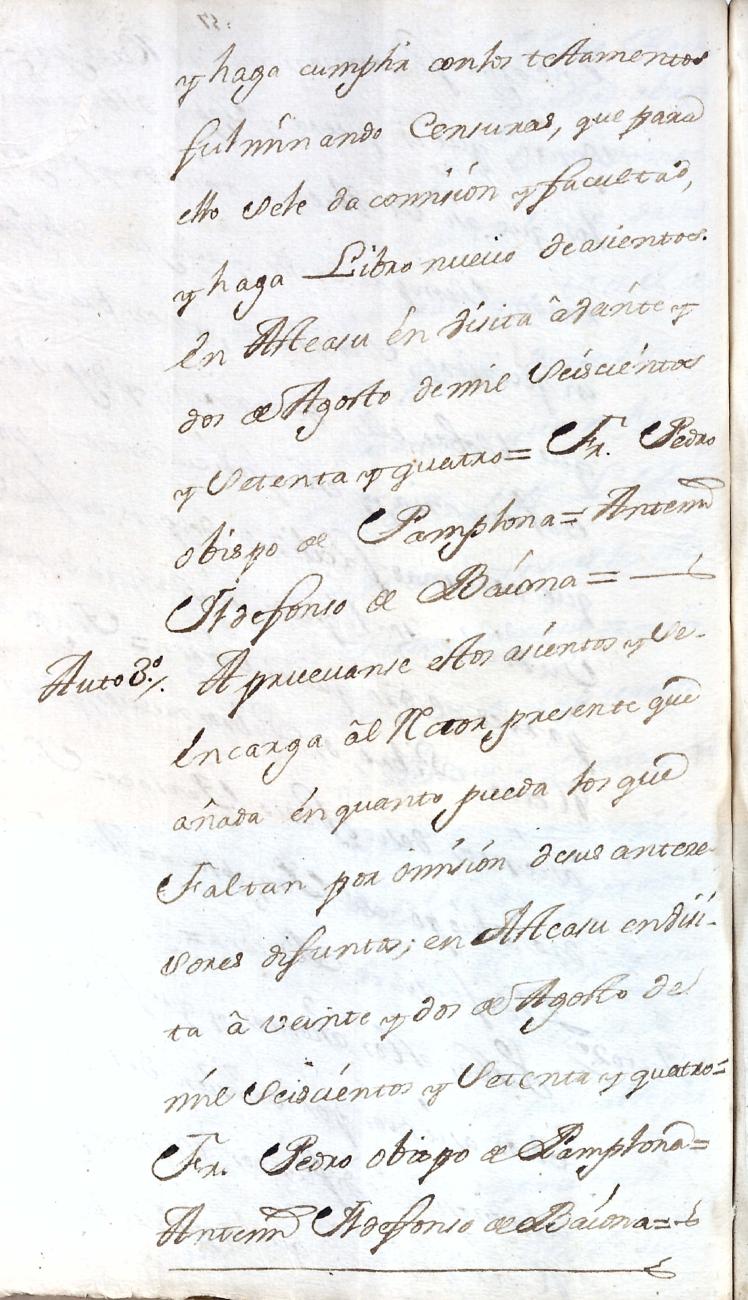 y haga cumplir con los testamentos
fulminando Censuras, que para
ello se le da comision y facultad,
y haga Libro nuevo de asientos.
En Alleasu en visita à
dos de Agosto de mil seiscientos
y Setenta y quatro= Fr. Pedro
obispo de Pamplona= Antemi
Ildefonso de Baiona=
Auto 3º/. Apruevanse estos asientos y se-
encarga àl Rector, presente que
añada en quanto pueda los que
Faltan por omision de sus antece-
sores difuntos; en Alleasu en visi-
ta à veinte y dos de Agosto de
mil Seiscientos y Setenta y quatro=
Fr. Pedro obispo de Pamplona=
Antemi Ildefonso de Baiona=